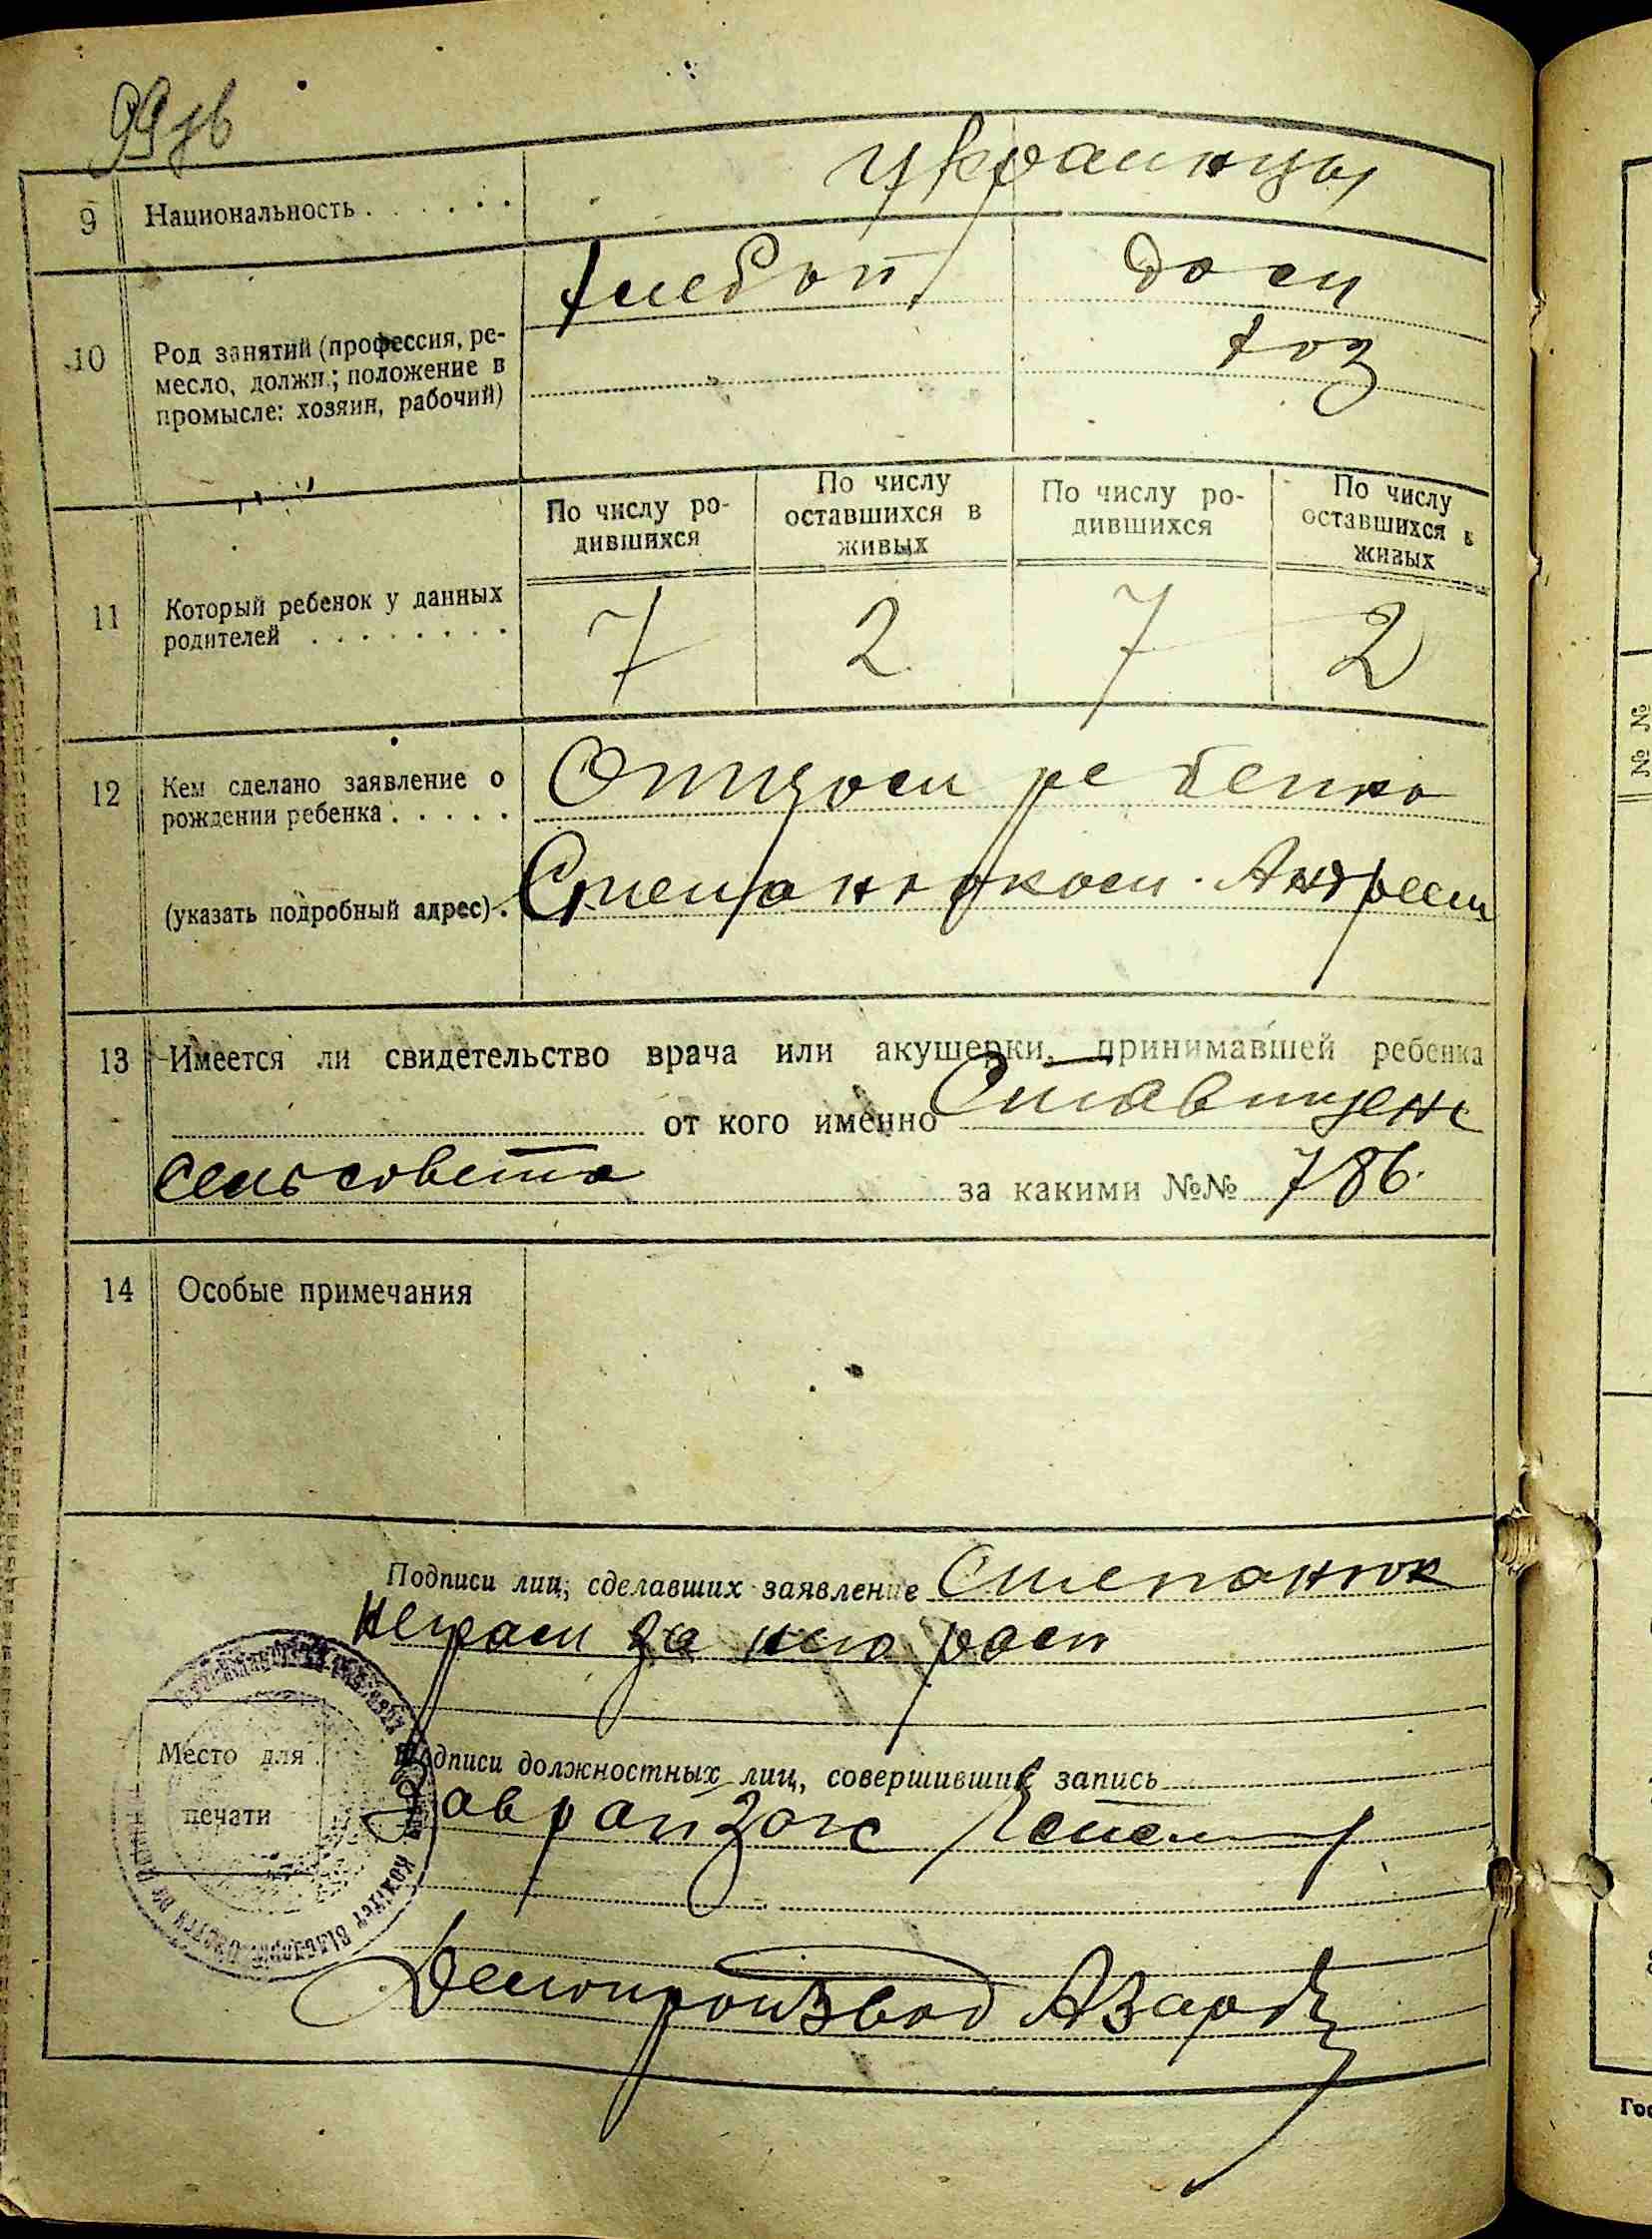 99зв
9 Национальность . . . . . . украинцы
10 Род занятий (профессия, ре-
месло, должн.; положение в
промысле: хозяин, рабочий)
хлебоп. дом
хоз
11 Который ребенок у данных
родителей . . . . . . . .
По числу ро-
дившихся
По числу
оставшихся в
живых
По числу ро-
дившихся
По числу
оставшихся в
живых
7 2 7 2
12 Кем сделано заявление о
рождении ребенка . . . . .
(указать подробный адрес) .
Отцом ребенка
Степанюком Андреем
13 Имеется ли свидетельство врача или акушерки, принимавшей ребенка
от кого именно Ставищен
сельсовета за какими №№ 786.
14 Особые примечания
Подписи лиц, сделавших заявление Степанюк
неграм за него расп
Место для
печати
Подписи должностных лиц, совершивших запись
Завраπзагс
Делопроизвод Азаров
№ №
Гос